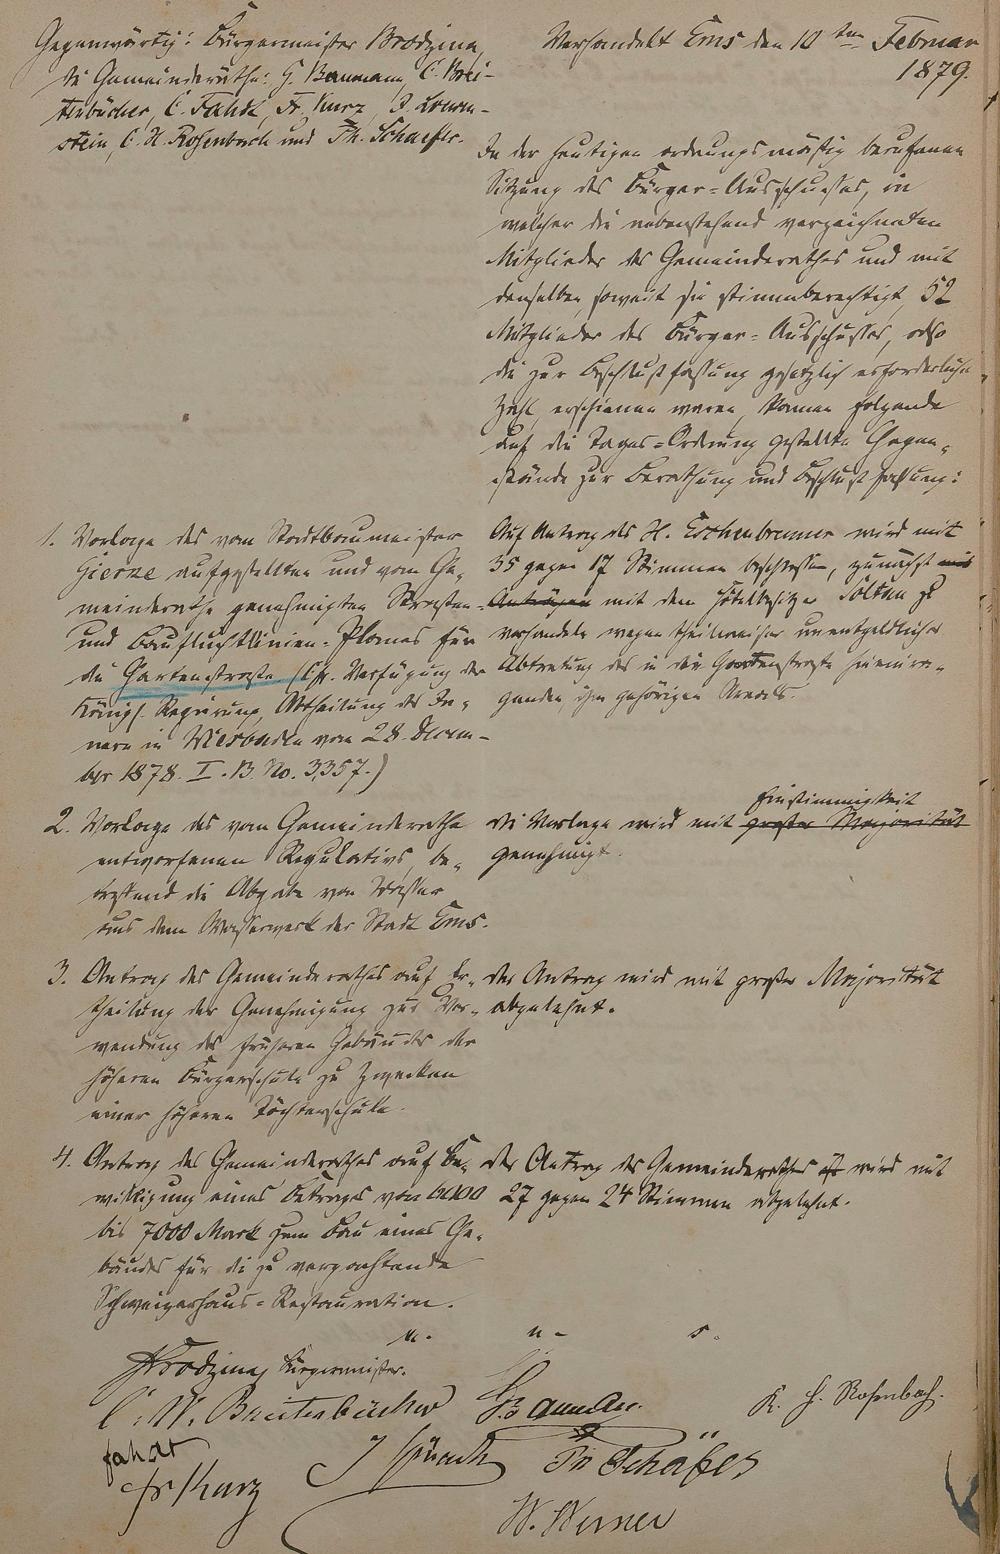 Gegenwärtig: Bürgermeister Brodzina,
die Gemeinderäthe: G. Baumann, C. Brei-
tenbücher, C. Fahdt, Fr. Kurz, J. Löwen-
stein, C. H. Rosenbach und Th. Schaefer.
Verhandelt Ems den 10ten Februar
1879.
In der heutigen ordnungsmäßig berufenen
Sitzung des Bürger-Ausschusses, in
welcher die nebenstehend verzeichneten
Mitglieder des Gemeinderathes und mit
denselben, soweit sie stimmberechtigt, 52
Mitglieder des Bürger-Ausschusses, also
die zur Beschlußfassung gesetzlich erforderliche
Zahl, erschienen waren, kamen folgende
auf die Tages-Ordnung gestellte Gegen-
stände zur Berathung und Beschlußfassung:
1. Vorlage des vom Stadtbaumeister
Gierze aufgestellten und vom Ge-
meinderathe genehmigten Straßen-
und Baufluchtlinien-Planes für
die Gartenstraße (Cfr. Verfügung der
Königl. Regierung, Abtheilung des In-
nern in Wiesbaden vom 28. Decem-
ber 1878. I. B. No. 3357.)
Auf Antrag des H. Eschenbrenner wird mit
35 gegen 17 Stimmen beschlossen, zunächst
mit dem Hôtelbesitzer Soltau zu
verhandeln wegen theilweiser unentgeldlicher
Abtretung des in die Gartenstraße hineinra-
genden, ihm gehörigen Areals.
2. Vorlage des vom Gemeinderathe
entworfenen Regulativs, be-
treffend die Abgabe von Wasser
aus dem Wasserwerk der Stadt Ems.
Einstimmigkeit
Die Vorlage wird mit großer Majorität
genehmigt.
3. Antrag des Gemeinderathes auf Er-
theilung der Genehmigung zur Ver-
wendung des früheren Gebäudes der
höheren Bürgerschule zu Zwecken
einer höheren Töchterschule.
Der Antrag wird mit großer Majorität
abgelehnt.
4. Antrag des Gemeinderathes auf Be-
willigung eines Betrages von 6000
bis 7000 Mark zum Bau eines Ge-
bäudes für die zu verpachtende
Schweizerhaus-Restauration.
Der Antrag des Gemeinderathes ist wird mit
27 gegen 24 Stimmen abgelehnt.
Brodzina, Bürgermeister.
C. W. Breitenbücher
G. Baumann.
K. H. Rosenbach.
Fahdt
Fr Kurz
Th Schäfer
W. Werner